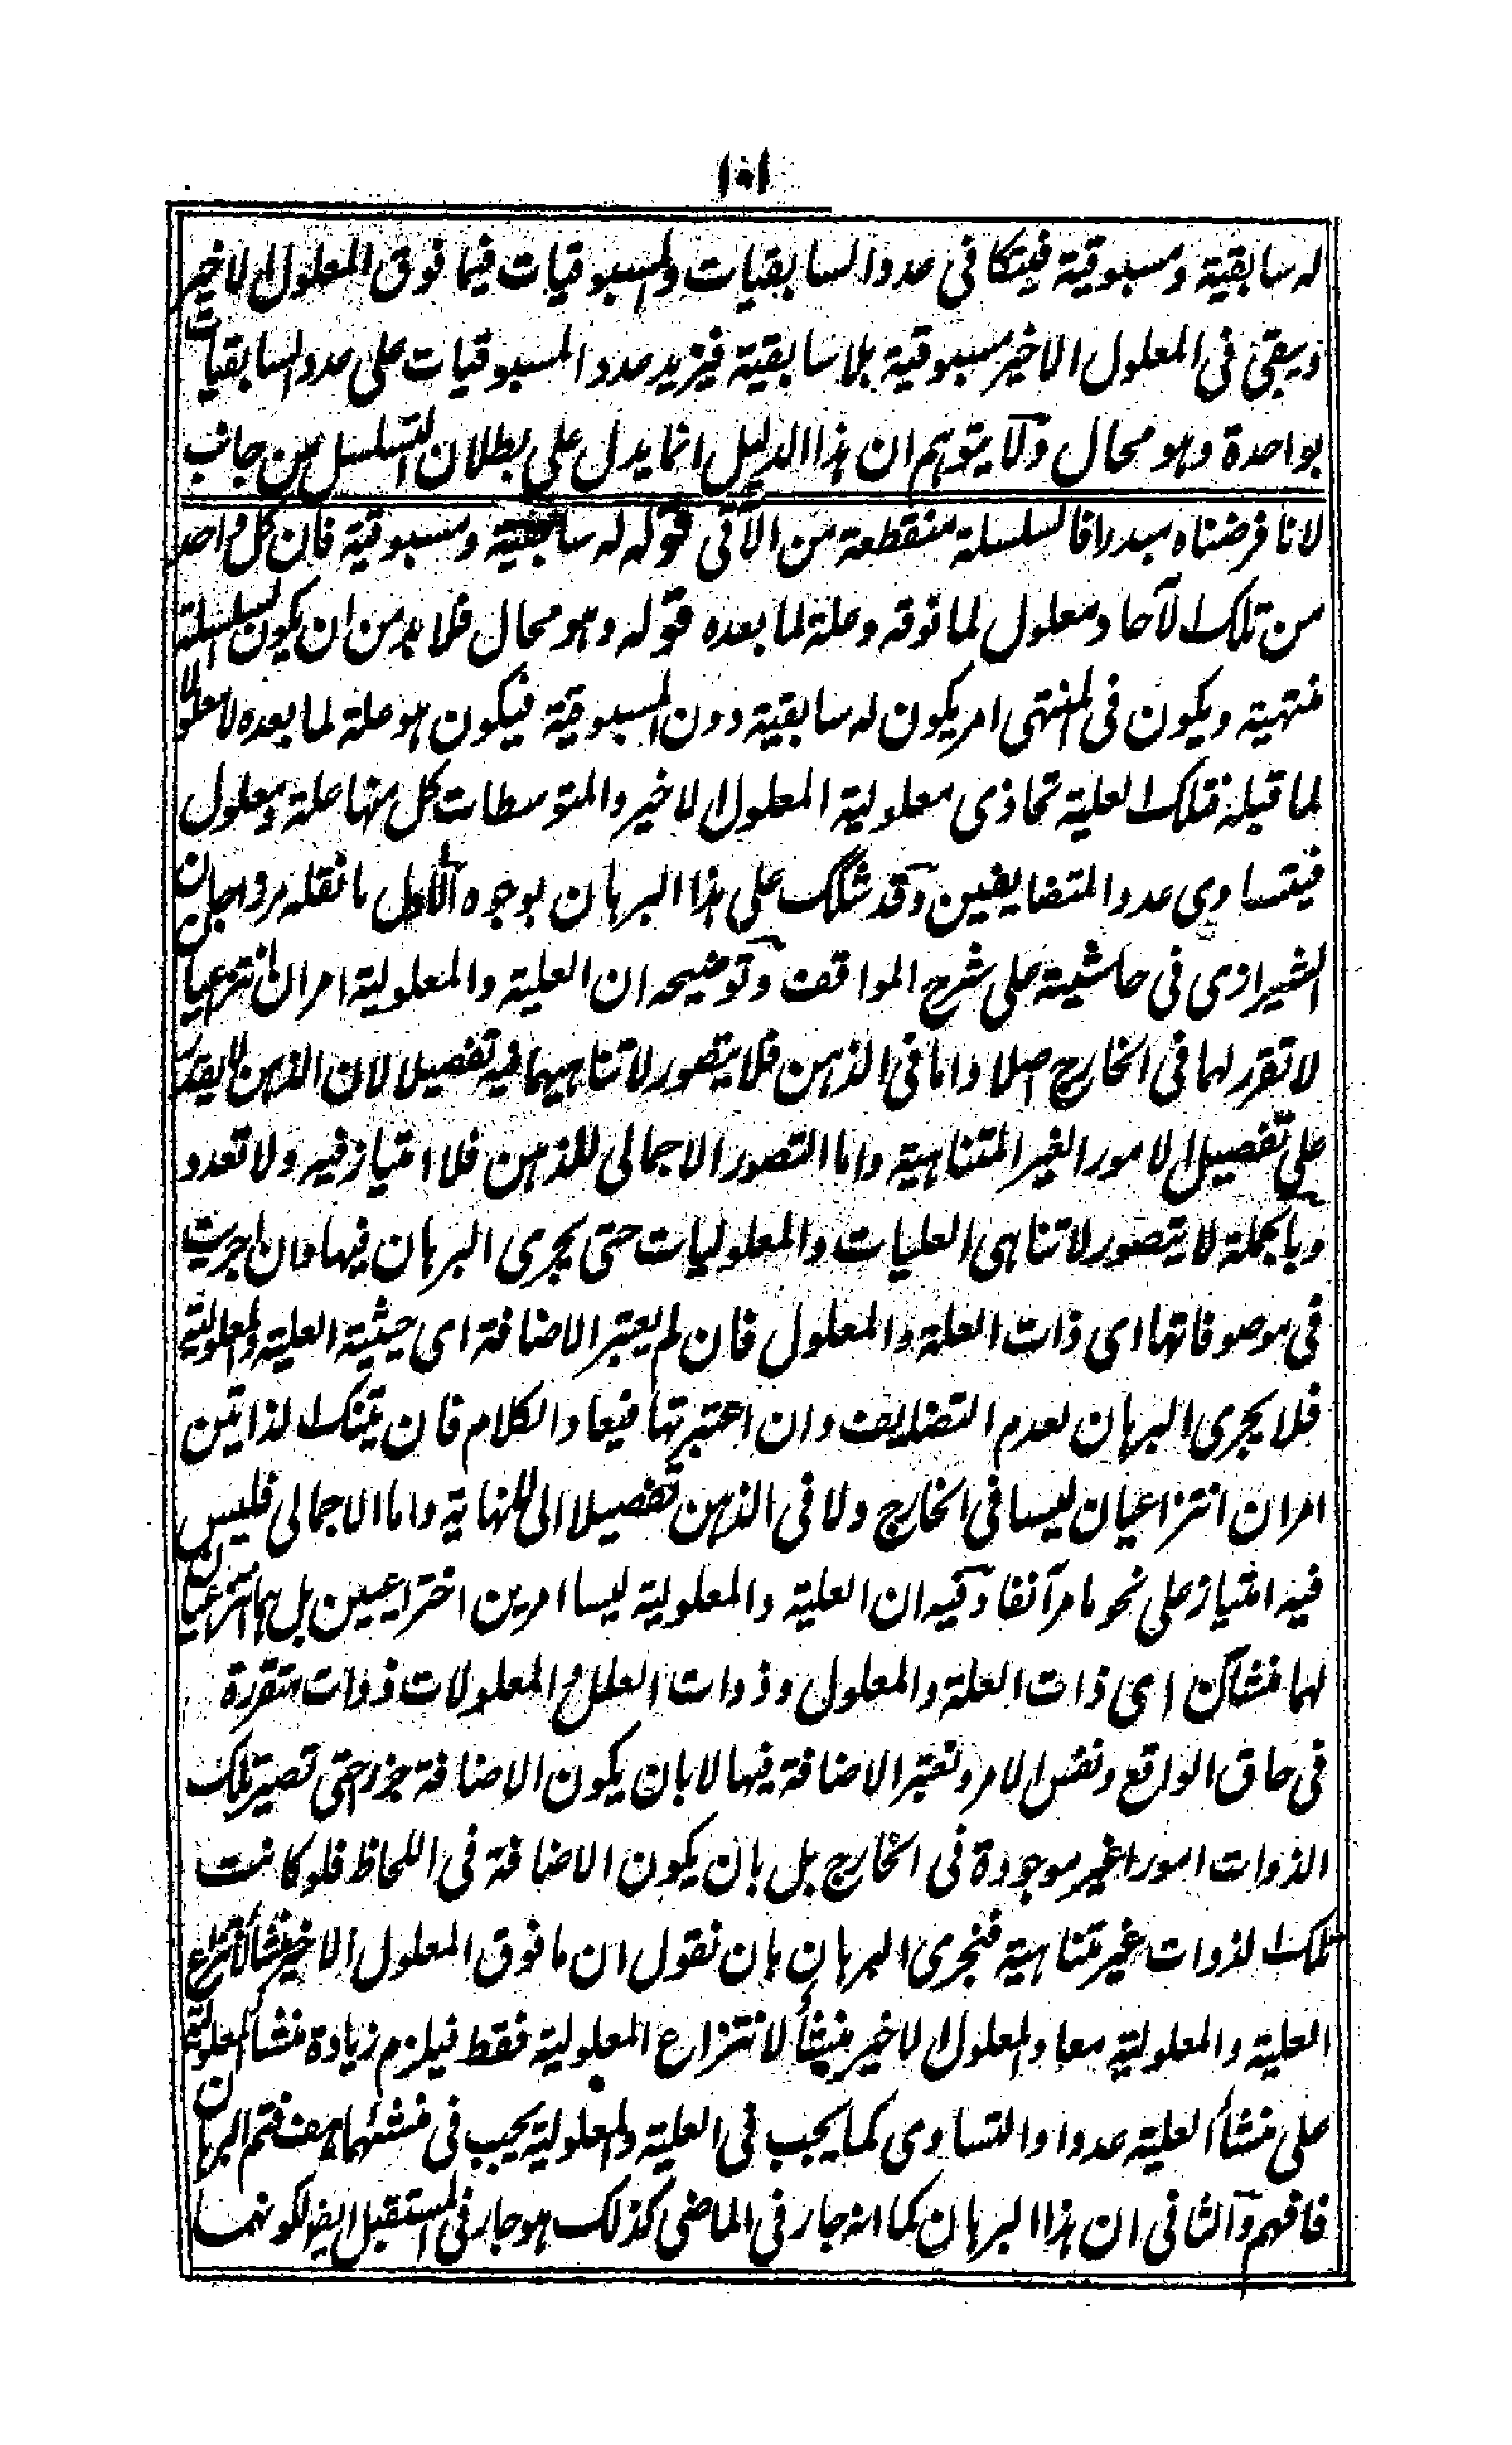 ١٠١
له سابقية ومسبوقية فيتكافى عدد السابقيات والمسبوقيات فيما فوق المعلول الاخير
ويبقى فى المعلول الاخير مسبوقية بلا سابقية فيزيد عدد المسبوقيات على عدد السابقيات
بواحدة وهو محال ولا يتوهم ان هذا الدليل انما يدل على بطلان التسلسل من جانب
لانا فرضناه مبدرا فالسلسلة منقطعة من الآتى قوله له سابقية ومسبوقية فان كل واحد
من تلك الآحاد معلول لما فوقه وعلة لما بعده قوله وهو محال فلا بد من ان يكون السلسلة
منتهية ويكون فى المنتهى امر يكون له سابقية دون المسبوقية فيكون هو علة لما بعده لا معلولا
لما قبله فتلك العلية تحاذى معلولية المعلول الاخير والمتوسطات كل منها علة ومعلول
فيتساوى عدد المتضايفين وقد شكك على هذا البرهان بوجوه الاول ما نقله مرزاجان
الشيرازى فى حاشيته على شرح المواقف وتوضيحه ان العلية والمعلولية امران انتزاعيان
لا تقرر لهما فى الخارج اصلا واما فى الذهن فلا يتصور لا تناهيهما فيه تفصيلا لان الذهن لا يقدر
على تفصيل الامور الغير المتناهية واما التصور الاجمالى للذهن فلا امتياز فيه ولا تعدد
وبالجملة لا يتصور لا تناهى العليات والمعلوليات حتى يجرى البرهان فيها وان اجريت
فى موصوفاتها اى ذات العلة والمعلول فان لم يعتبر الاضافة اى حيثية العلية والمعلولية
فلا يجرى البرهان لعدم التضايف وان اعتبرتها فيعاد الكلام فان تينك الذاتين
امران انتزاعيان ليسا فى الخارج ولا فى الذهن تفصيلا الى اللانهاية واما الاجمالى فليس
فيه امتياز على نحو ما مر آنفا وفيه ان العلية والمعلولية ليسا امرين اختراعيين بل هما انتزاعيان
لهما منشآن اى ذات العلة والمعلول وذوات العلل والمعلولات ذوات متقررة
فى حاق الواقع ونفس الامر ونعتبر الاضافة فيها لا بان يكون الاضافة جزء حتى تصير تلك
الذوات امورا غير موجودة فى الخارج بل بان يكون الاضافة فى اللحاظ فلو كانت
تلك الذوات غير متناهية فنجرى البرهان بان نقول ان ما فوق المعلول الاخير منشأ لانتزاع
العلية والمعلولية معا والمعلول الاخير منشأ لانتزاع المعلولية فقط فيلزم زيادة منشأ المعلولية
على منشأ العلية عددا والتساوى كما يجب فى العلية والمعلولية يجب فى منشئهما هف فتم البرهان
فافهم والثانى ان هذا البرهان كما انه جار فى الماضى كذلك هو جار فى المستقبل ايضا لكونهما